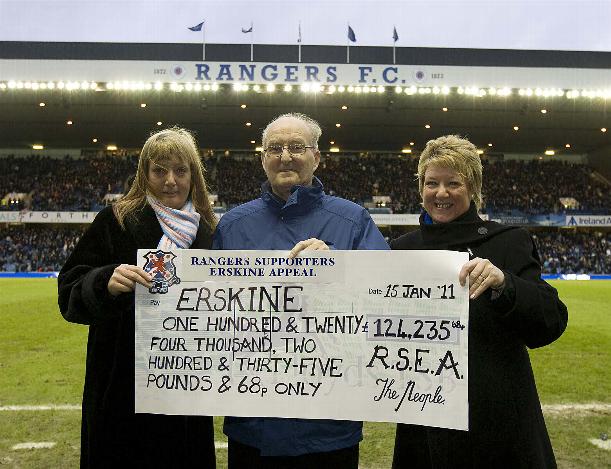 1872 RANGERS F.C. 1872
Ireland
RANGERS SUPPORTERS
ERSKINE APPEAL
DATE 15 JAN '11
PAY ERSKINE
ONE HUNDRED & TWENTY
FOUR THOUSAND, TWO
HUNDRED & THIRTY-FIVE
POUNDS & 68p ONLY
£ 124,235 68p
R.S.E.A.
The People.